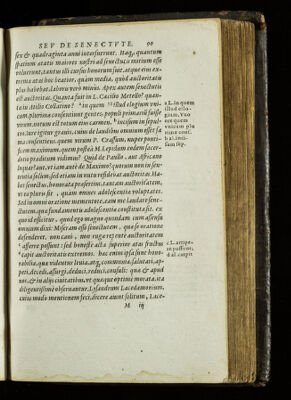 SEV DE SENECTVTE. 90
sex & quadraginta anni interfuerunt. Itaq; quantum
spatium ætatis maiores nostri ad senectutis initium esse
voluerunt, tantus illi cursus honorum fuit. atque eius ex-
trema ætas hoc beatior, quàm media, quòd auctoritatis
plus habebat, laboris verò minus. Apex autem senectutis
est auctoritas. Quanta fuit in L. Cæcilio Metello? quan-
ta in Atilio Collatino? in quem illud elogium vni-
cum plurimæ consentiunt gentes, populi primariũ fuisse
virum. notum est totum eius carmen incisum in sepul-
cro. iure igitur grauis, cuius de laudibus omnium esset fa
ma consentiens. quem virum P. Crassum, nuper pontifi-
cem maximum, quem postea M. Lepidum eodem sacer-
dotio præditum vidimus? Quid de Paullo, aut Africano
loquar? aut, vt iam antè de Maximo? quorum non in sen-
tentia solùm, sed etiam in nutu residebat auctoritas. Ha-
bet senectus, honorata præsertim, tantam auctoritatem,
vt ea pluris sit, quàm omnes adolescentiæ voluptates.
Sed in omni oratione mementote, eam me laudare senec-
tutem, quæ fundamentis adolescentiæ constituta sit. ex
quo id efficitur, quod ego magno quondam cum assensu
omnium dixi: Miseram esse senectutem, quæ se oratione
defenderet. non cani, non rugæ repentè auctoritatem
afferre possunt: sed honestè acta superior ætas fructus
capit auctoritatis extremos. hæc enim ipsa sunt hono-
rabilia, quæ videntur leuia, atq; communia, salutari, ap-
peti, decedi, assurgi, deduci, reduci, consuli: quæ & apud
nos, & in aliis ciuitatibus, vt quæque optimè morata, ita
diligentissimè obseruantur. Lysandrum Lacedæmonium,
cuius modò mentionem feci, dicere aiunt solitum, Lace-
M ij
a L. in quem
illud elo-
gium, Vno
ore
b al. inci-
sum sep.
c L. arripe-
re possunt.
d al. carpit